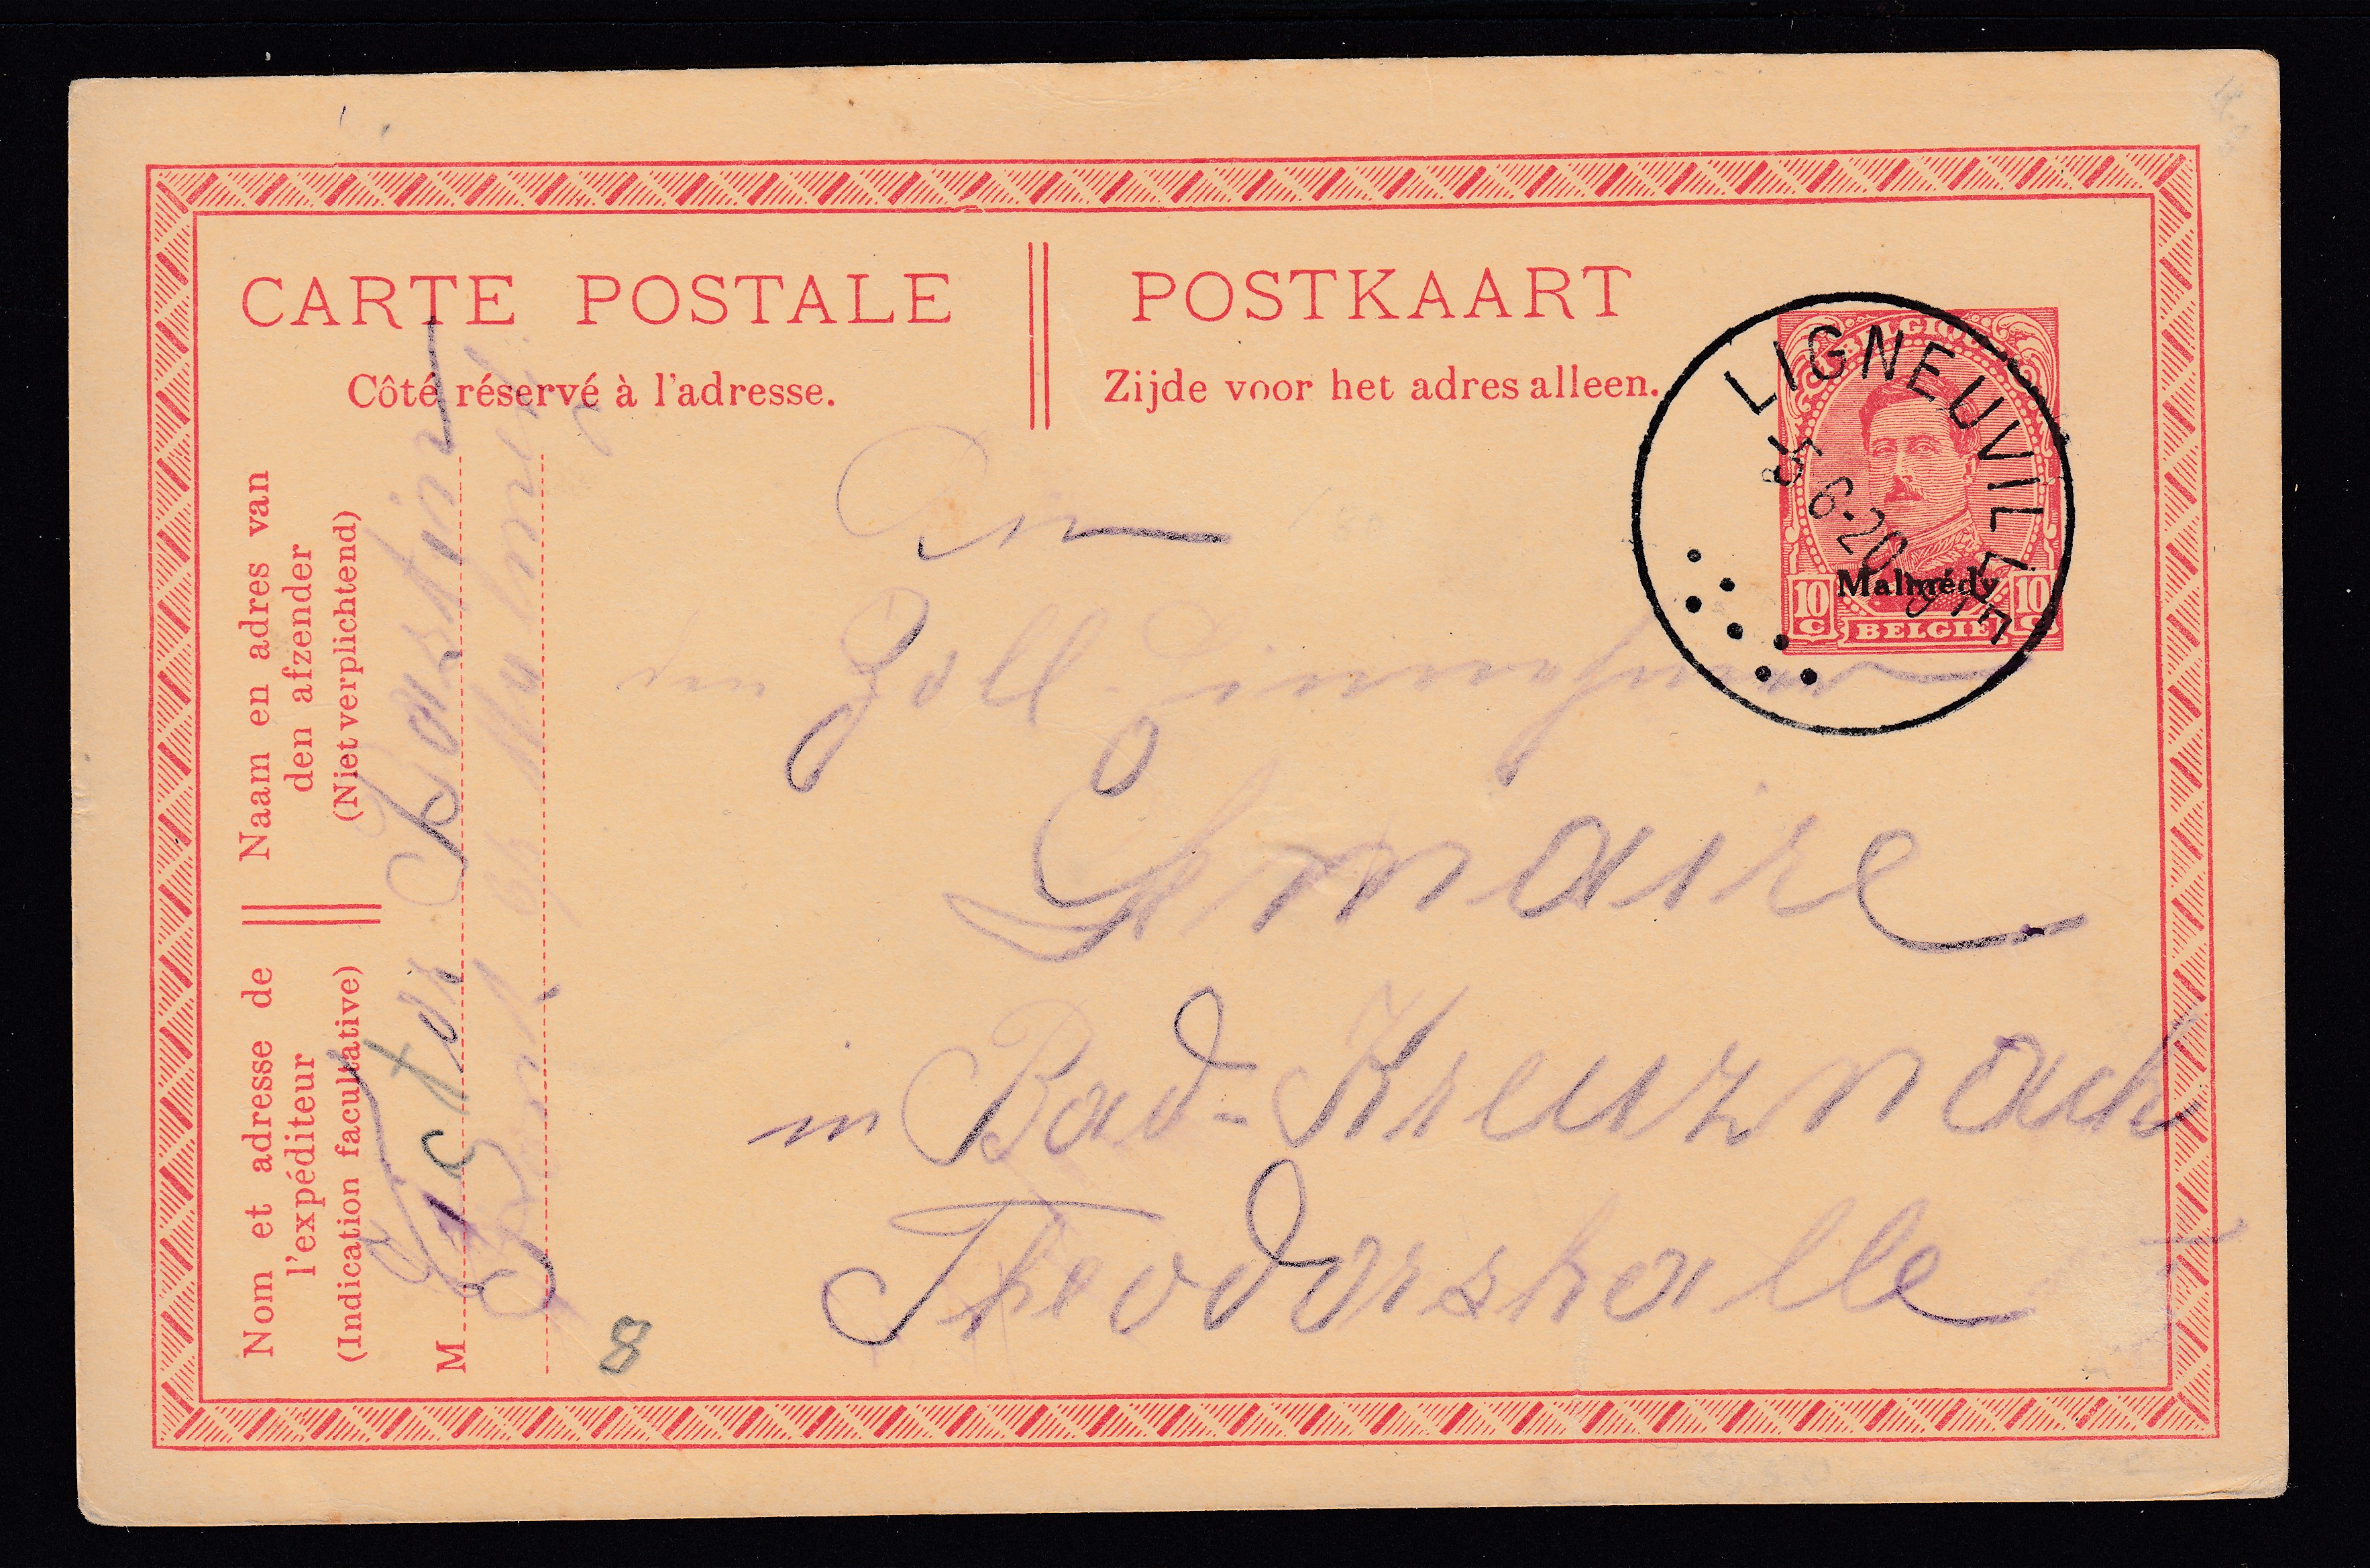 CARTE POSTALE
POSTKAART
Côté réservé à l'adresse.
Zijde voor het adres alleen.
BELGIQUE
Malmédy
10 c BELGIË 10 c
LIGNEUVILLE
6-20
Naam en adres van
den afzender
(Niet verplichtend)
Nom et adresse de
l'expéditeur
(Indication facultative)
M Victor Bastin
An
Zoll
in Bad-Kreuznach
Theodorshalle
8